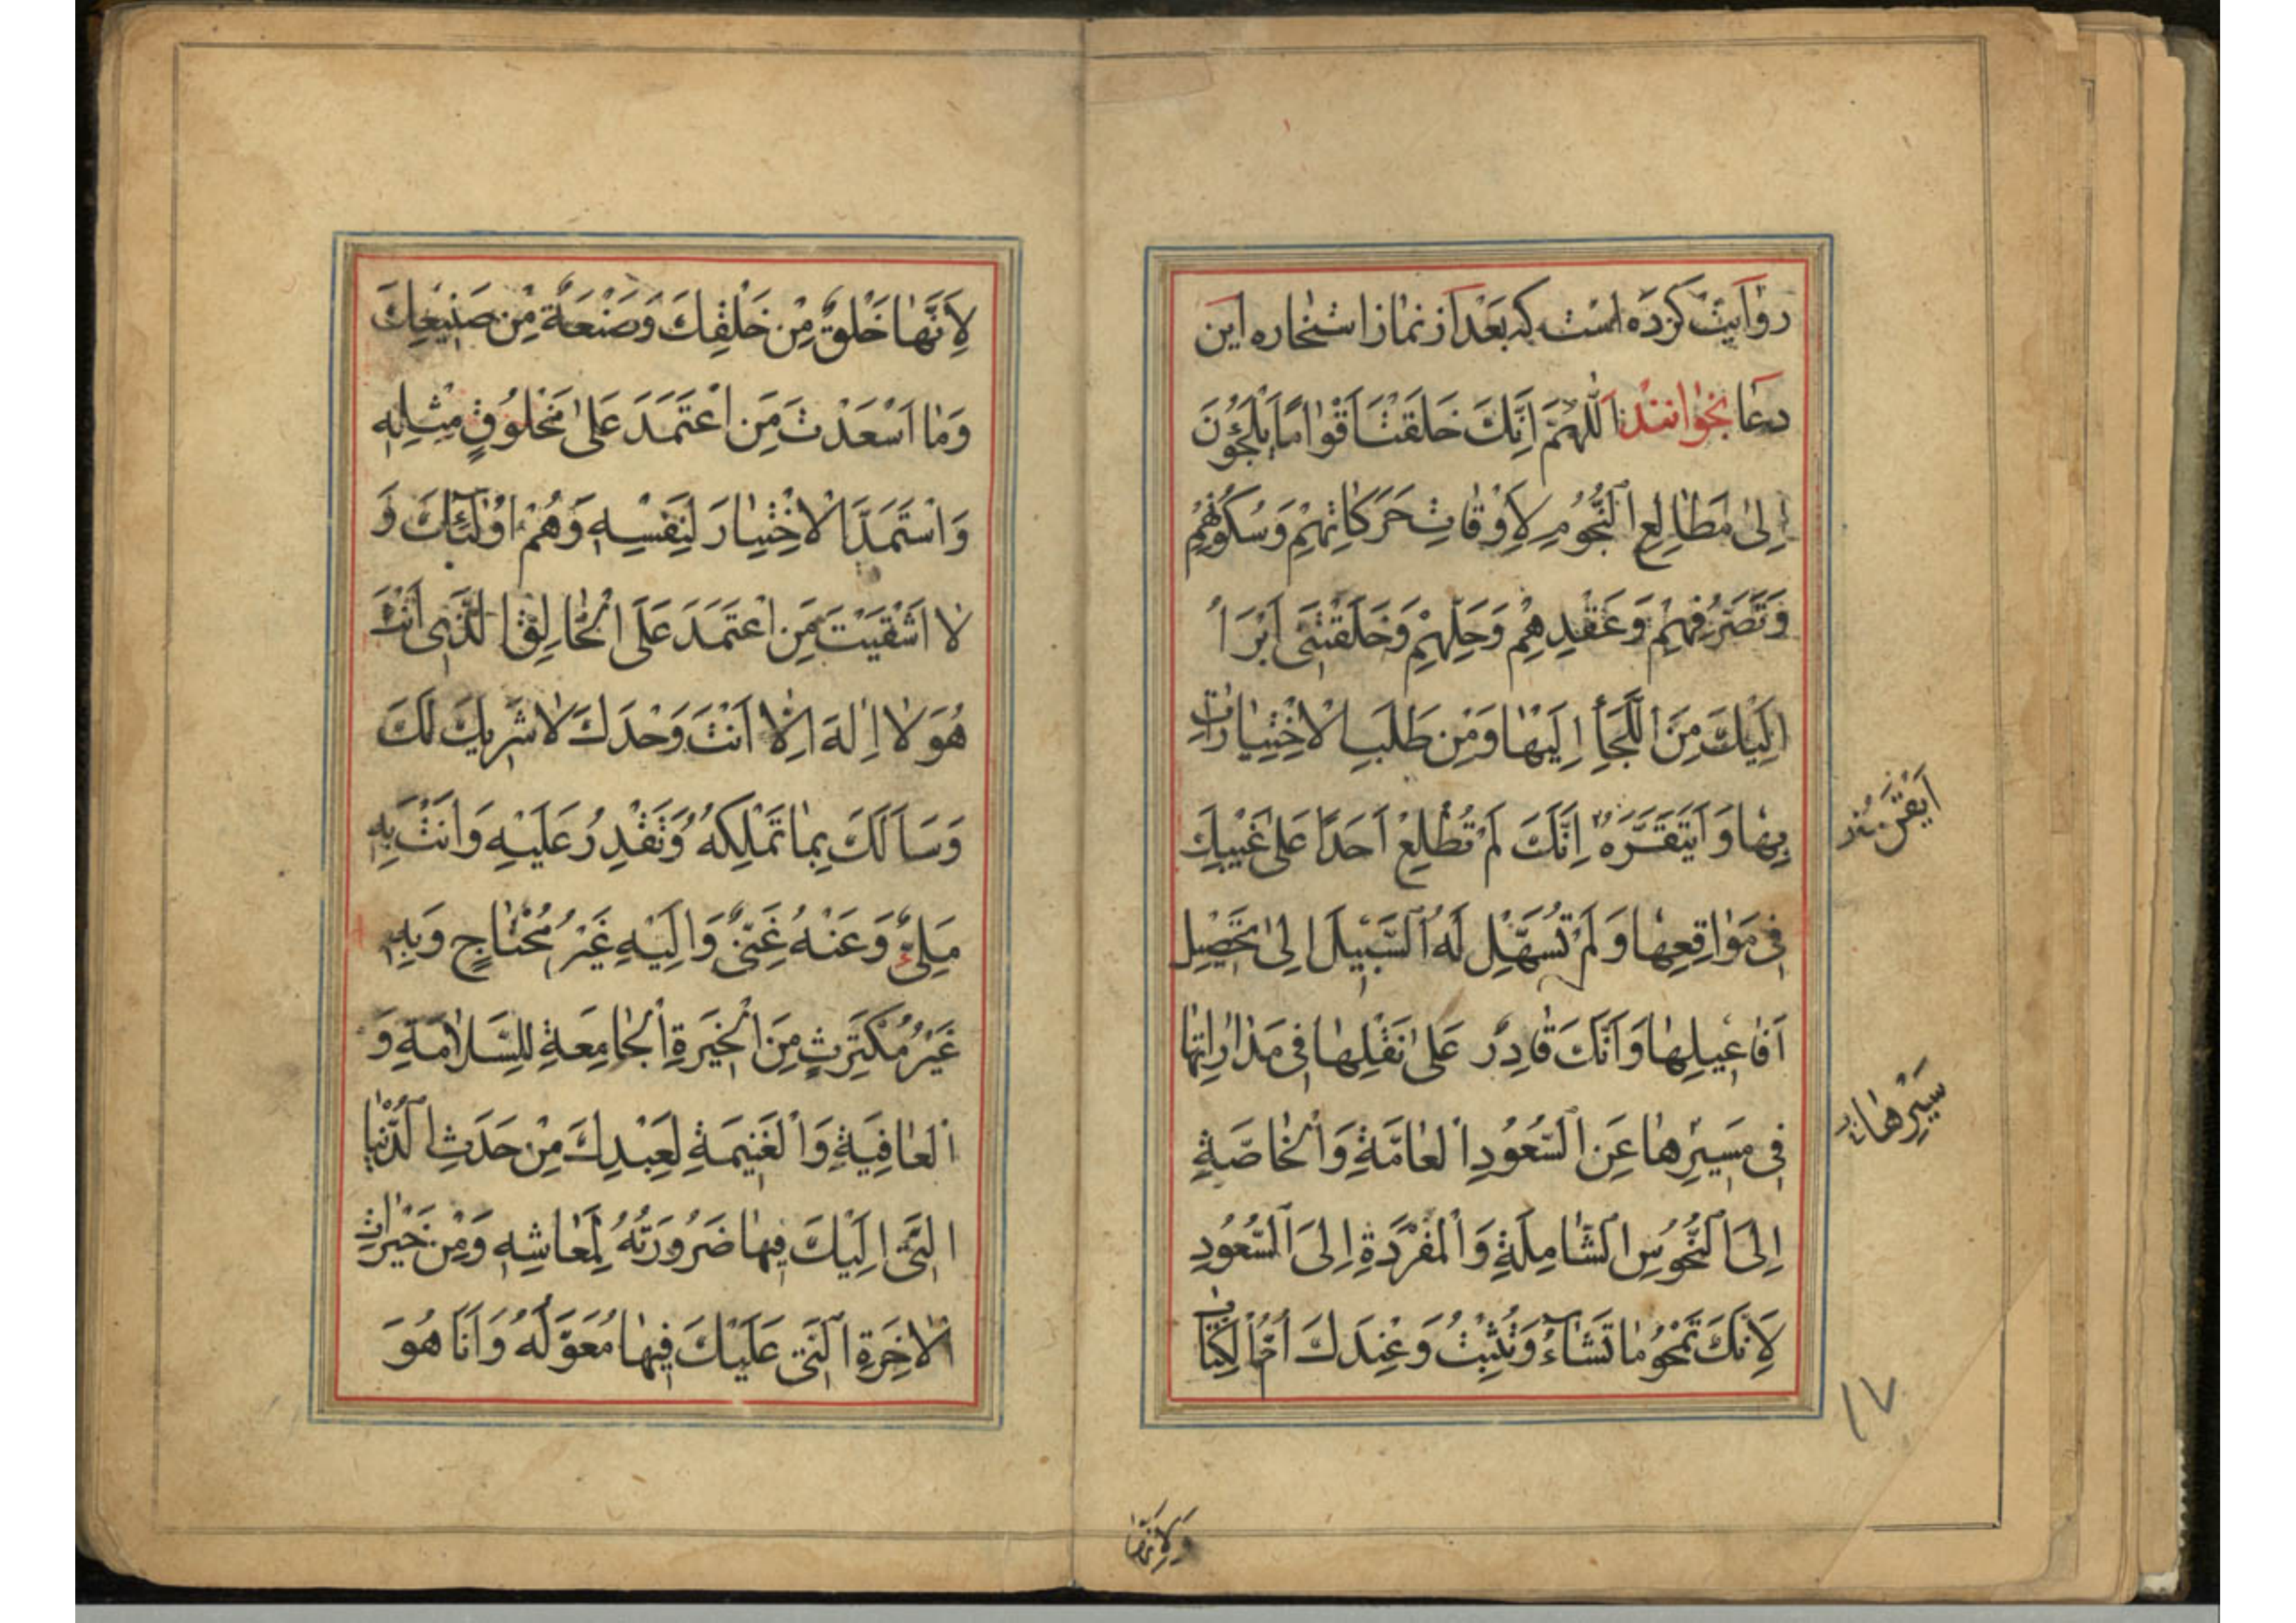 روایت کرده است که بعد از نماز استخاره این
دعا بخوانند اَللّٰهُمَّ اِنَّكَ خَلَقْتَ اَقْوٰامًا يَلْجَؤُنَ
اِلىٰ مَطٰالِعِ النُّجُومِ لِاَوْقٰاتِ حَرَكٰاتِهِمْ وَسُكُونِهِمْ
وَتَصَرُّفِهِمْ وَعَقْدِهِمْ وَحَلِّهِمْ وَخَلَقْتَنِى اَبْرَأُ
اِلَيْكَ مِنَ اللَّجَأِ اِلَيْهٰا وَمِنْ طَلَبِ الْاِخْتِيٰارٰاتِ
بِهٰا وَ اَنَّكَ لَمْ تُطْلِعْ اَحَدًا عَلىٰ غَيْبِكَ
فِى مَوٰاقِعِهٰا وَلَمْ تُسَهِّلْ لَهُ السَّبِيلَ اِلىٰ تَحْصِيلِ
اَفٰاعِيلِهٰا وَاَنَّكَ قٰادِرٌ عَلىٰ نَقْلِهٰا فِى مَدٰارٰاتِهٰا
فِى مَسِيرِهٰا عَنِ السُّعُودِ الْعٰامَّةِ وَالْخٰاصَّةِ
اِلَى النُّحُوسِ الشّٰامِلَةِ وَالْمُفْرَدَةِ اِلَى السُّعُودِ
لِاَنَّكَ تَمْحُو مٰا تَشٰآءُ وَتُثْبِتُ وَعِنْدَكَ اُمُّ الْكِتٰابِ
سَيْرِهٰا
۱۷
وَلِاَنَّهٰا
لِاَنَّهٰا خَلْقٌ مِنْ خَلْقِكَ وَصَنْعَةٌ مِنْ صَنِيعِكَ
وَمٰا اَسْعَدْتَ مَنِ اعْتَمَدَ عَلىٰ مَخْلُوقٍ مِثْلِهِ
وَاسْتَمَدَّ الْاِخْتِيٰارَ لِنَفْسِهِ وَهُمْ اُولٰئِكَ وَ
لٰا اَشْقَيْتَ مَنِ اعْتَمَدَ عَلَى الْخٰالِقِ الَّذِى اَنْتَ
هُوَ لٰا اِلٰهَ اِلّٰا اَنْتَ وَحْدَكَ لٰا شَرِيكَ لَكَ
وَسَاَلَكَ بِمٰا تَمْلِكُهُ وَتَقْدِرُ عَلَيْهِ وَاَنْتَ بِهِ
مَلِىءٌ وَعَنْهُ غَنِىٌّ وَاِلَيْهِ غَيْرُ مُحْتٰاجٍ وَبِهِ
غَيْرُ مُكْتَرِثٍ مِنَ الْخِيَرَةِ الْجٰامِعَةِ لِلسَّلٰامَةِ وَ
الْعٰافِيَةِ وَالْغَنِيمَةِ لِعَبْدِكَ مِنْ حَدَثِ الدُّنْيٰا
الَّتِى اِلَيْكَ فِيهٰا ضَرُورَتُهُ لِمَعٰاشِهِ وَمِنْ خَيْرٰاتِ
الْاٰخِرَةِ الَّتِى عَلَيْكَ فِيهٰا مُعَوَّلُهُ وَاَنَا هُوَ